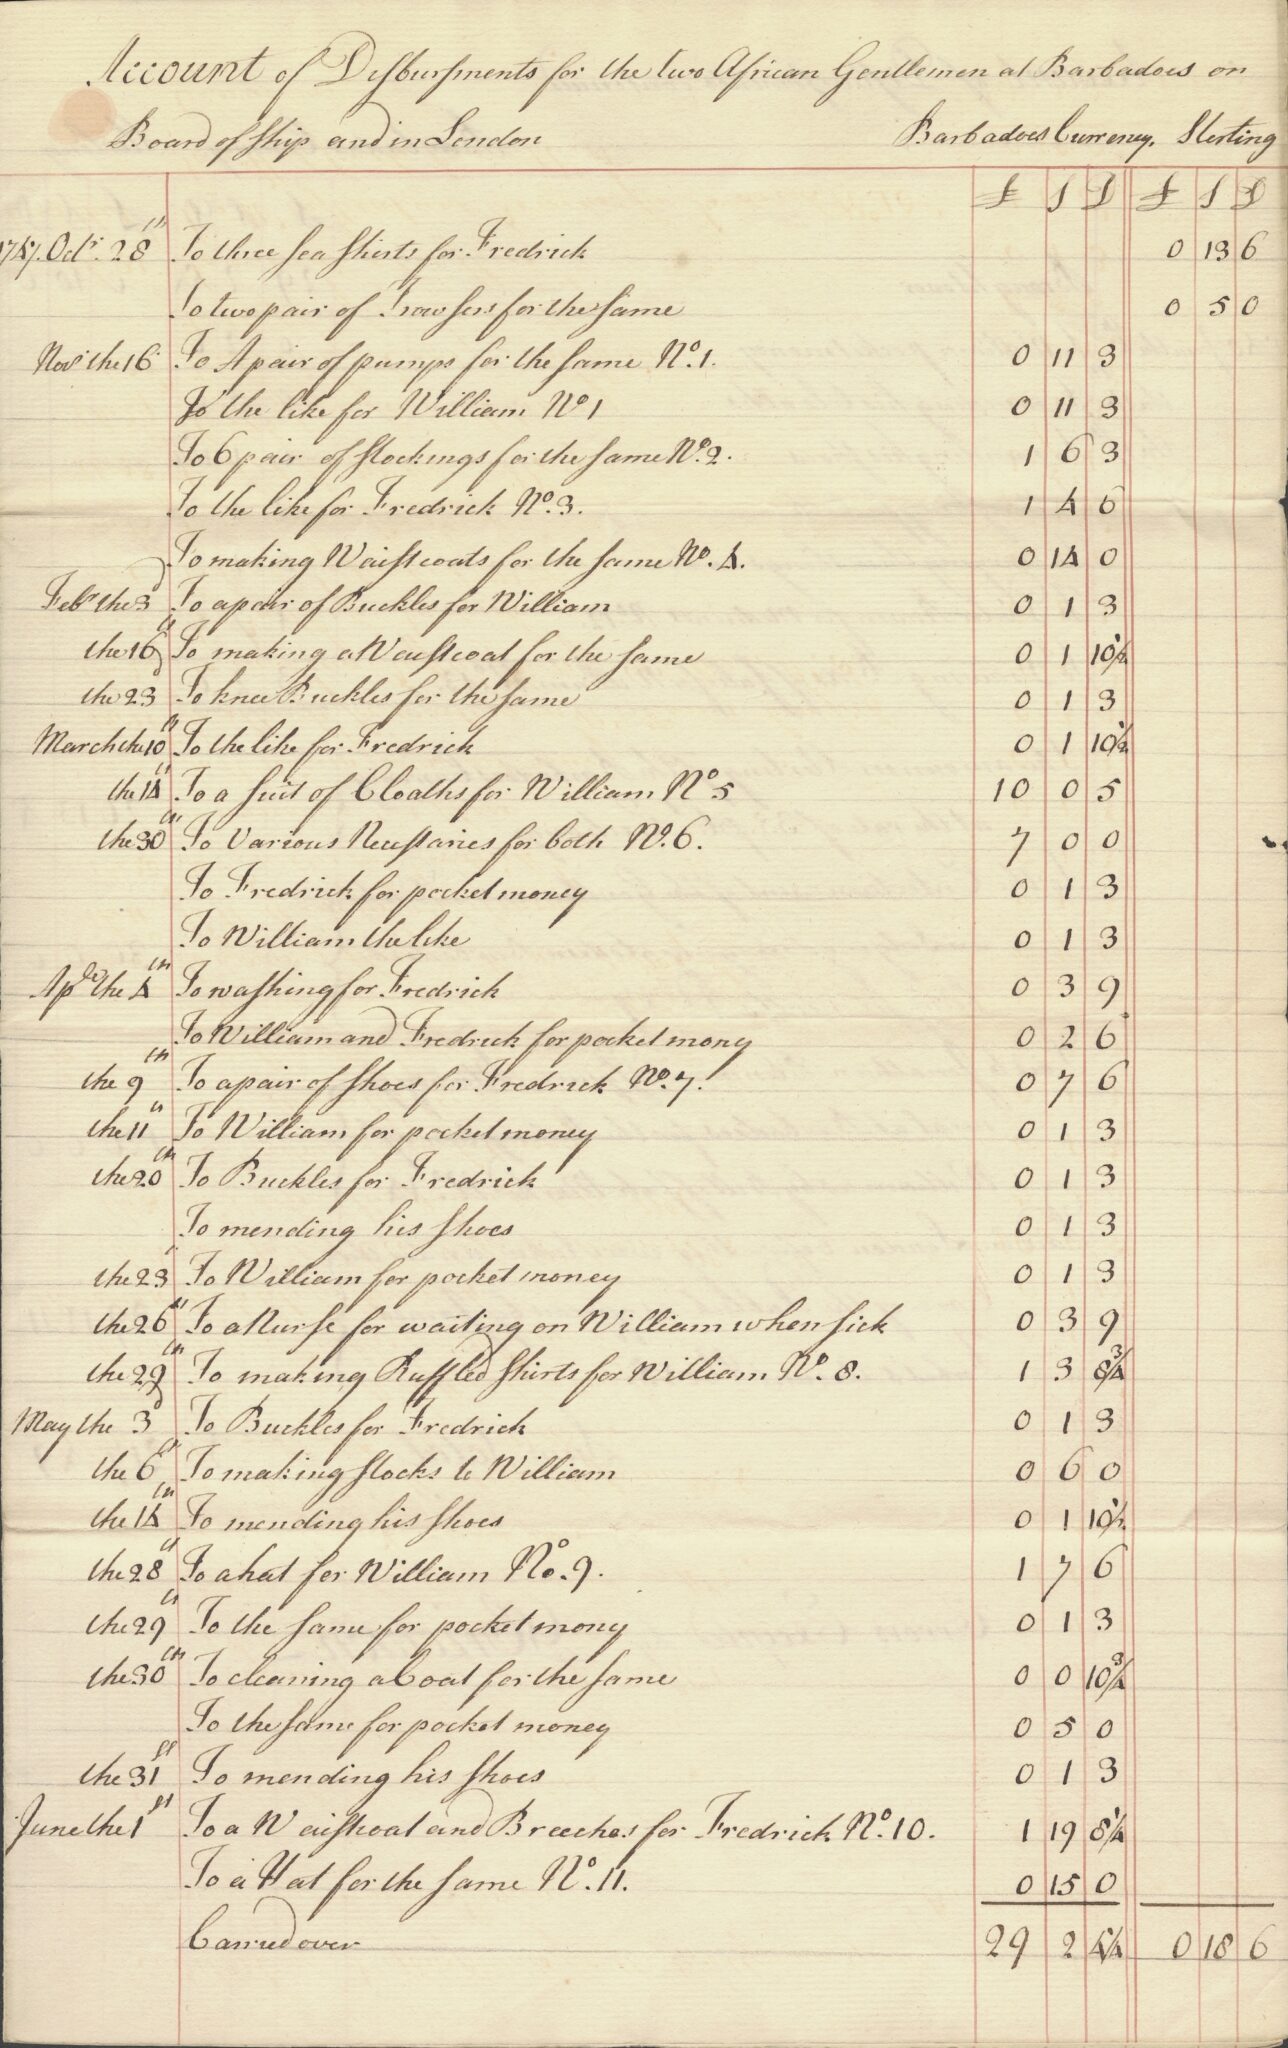 Account of Disbursments for the two African Gentlemen at Barbadoes on
Board of Ship and in London Barbadoes Currency. Sterling
£ S D £ S D
1747. Octr. 28th To three sea Shirts for Fredrick 0 13 6
To two pair of Trowsers for the same 0 5 0
Novr the 16 To A pair of pumps for the same No. 1. 0 11 3
To the like for William No 1 0 11 3
To 6 pair of stockings for the same No. 2. 1 6 3
To the like for Fredrick No. 3. 1 4 6
To making Waistcoats for the same No. 4. 0 14 0
Feby the 3d To a pair of Buckles for William 0 1 3
the 16th To making a Waistcoat for the same 0 1 10½
the 23d To knee Buckles for the same 0 1 3
March the 10th To the like for Fredrick 0 1 10½
the 14th To a suit of Cloaths for William No 5 10 0 5
the 30th To Various Necessaries for both No. 6. 7 0 0
To Fredrick for pocket money 0 1 3
To William the like 0 1 3
the 4th To washing for Fredrick 0 3 9
To William and Fredrick for pocket mony 0 2 6
the 9th To a pair of Shoes for Fredrick No. 7. 0 7 6
the 11th To William for pocket money 0 1 3
the 20th To Buckles for Fredrick 0 1 3
To mending his Shoes 0 1 3
the 23 To William for pocket money 0 1 3
the 26th To a Nurse for waiting on William when sick 0 3 9
the 29th To making Ruffled Shirts for William No. 8. 1 3 8¾
May the 3d To Buckles for Fredrick 0 1 3
the 6th To making stocks to William 0 6 0
the 14th To mending his Shoes 0 1 10½
the 28th To a hat for William No. 9. 1 7 6
the 29th To the same for pocket mony 0 1 3
the 30th To cleaning a Coat for the same 0 0 10¾
To the same for pocket money 0 5 0
the 31st To mending his Shoes 0 1 3
June the 1st To a Waistcoat and Breeches for Fredrick No. 10. 1 19 8¼
To a Hat for the same No. 11. 0 15 0
Carried over 29 2 4¼ 0 18 6